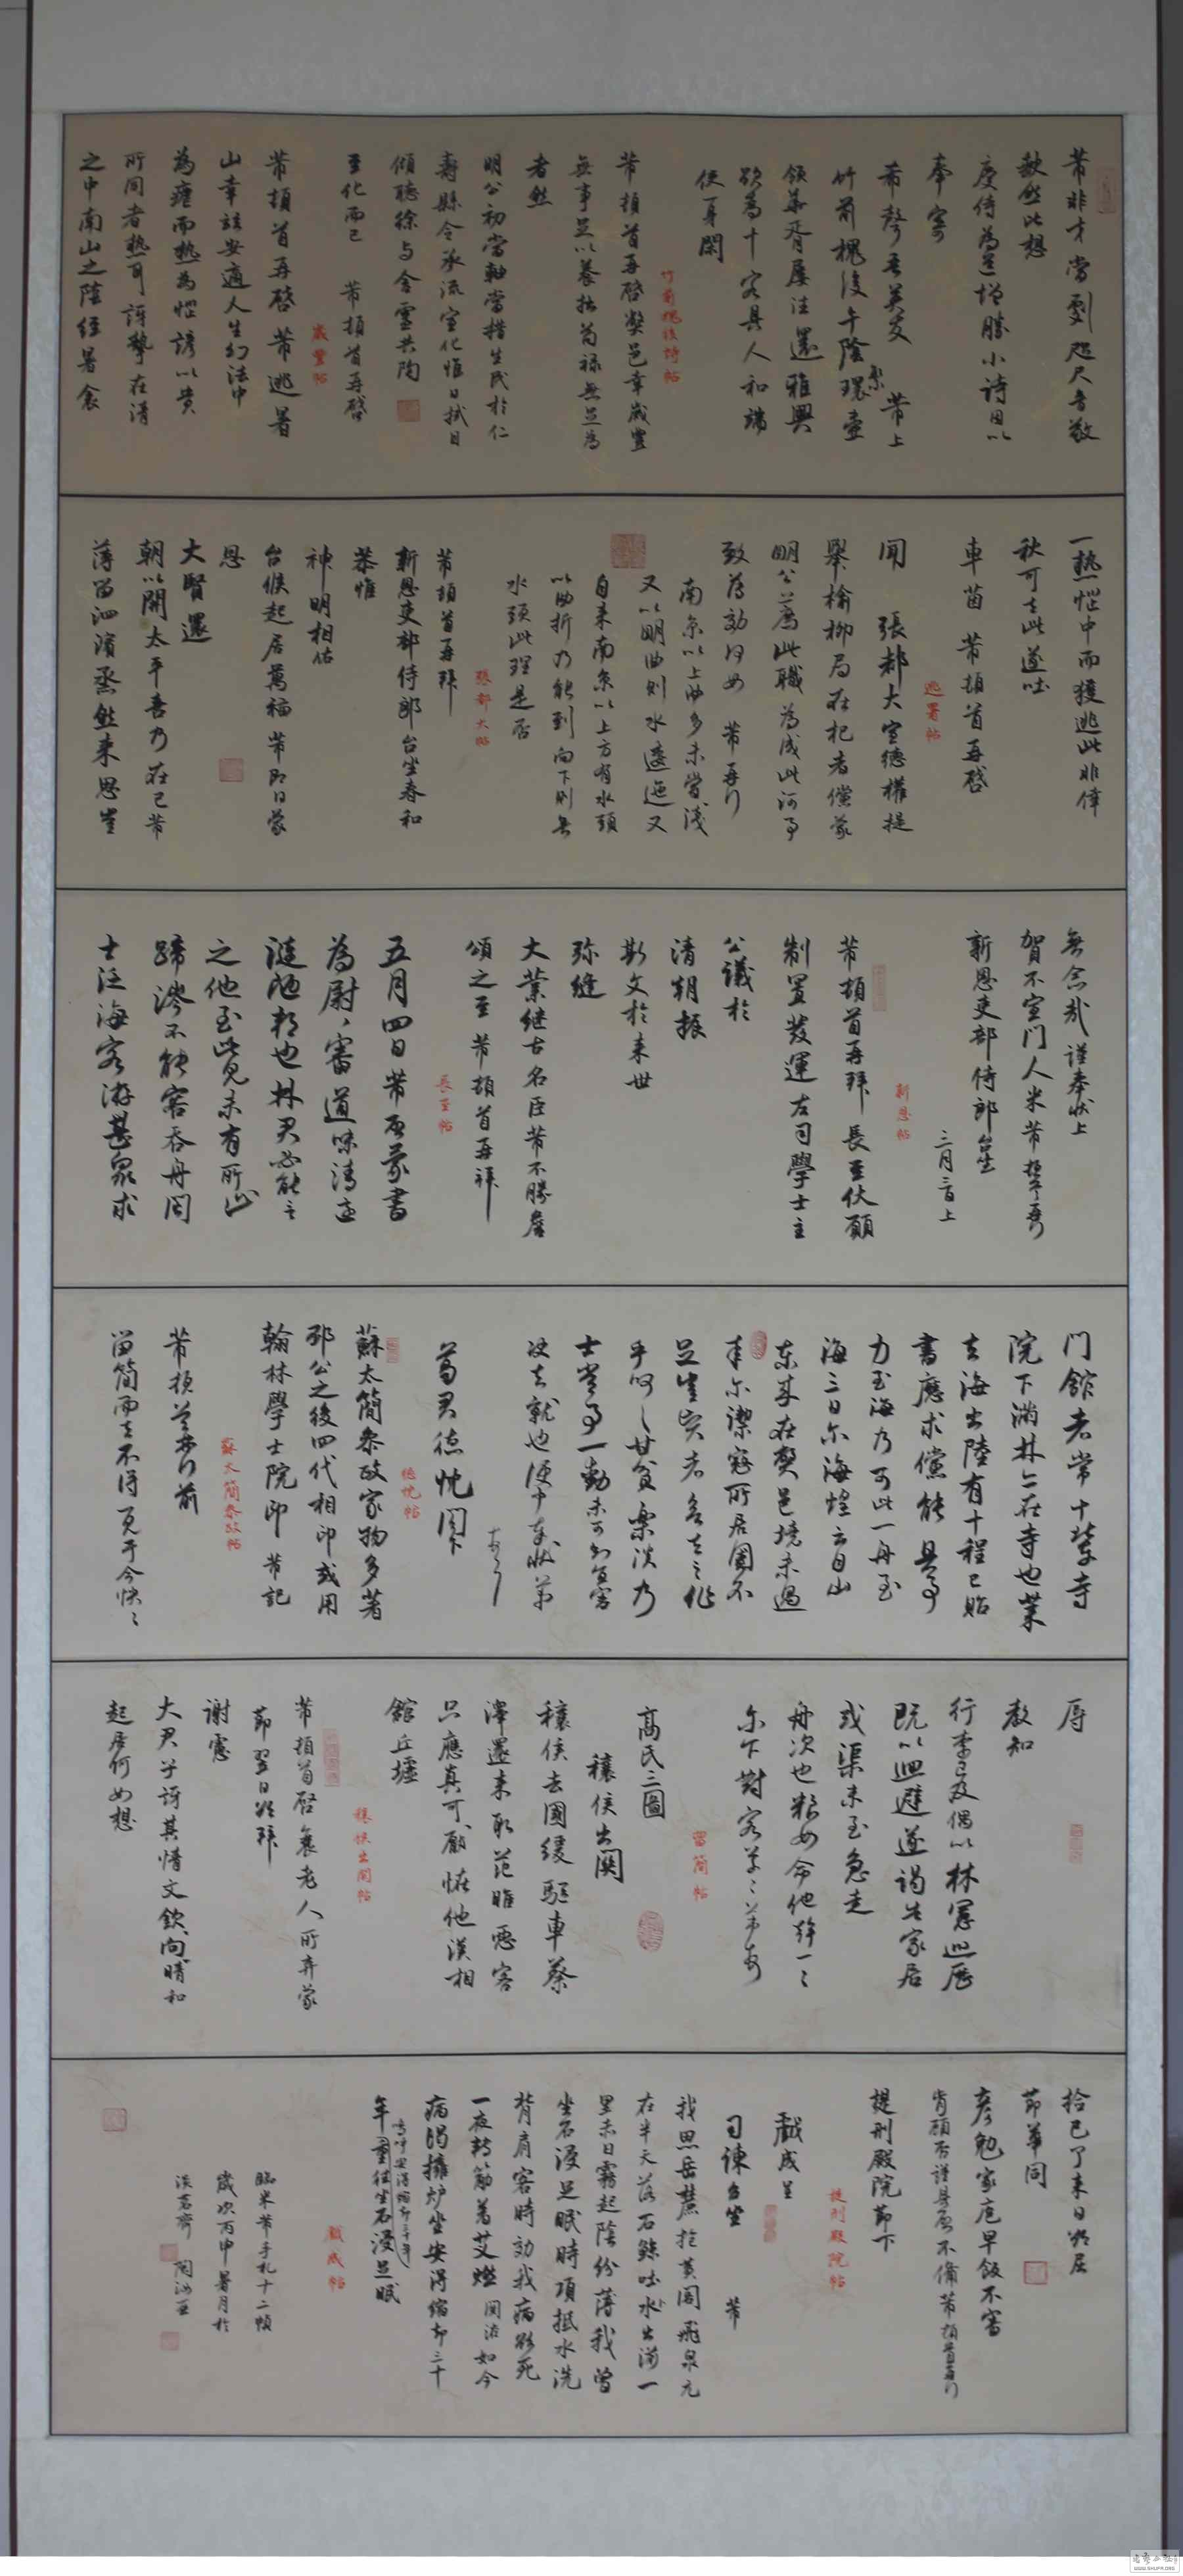 芾非才當劇咫尺音敬
缺然此想
慶侍為道增勝小詩因以
奉寄
希聲吾英友 芾上
竹前槐後午陰環壺
領華胥屢往還雅興
欲為十客具人和端
使一身閑
竹前槐後詩帖
芾頓首再啓弊邑幸歲豐
無事足以養拙苟祿無足為
者然
明公初當軸當措生民於仁
壽縣令承流宣化惟日拭目
傾聽徐与含靈共陶
至化而已 芾頓首再啓
歲豐帖
芾頓首再啓芾逃暑
山幸玆安適人生幻法中
為虐而熱為惱諺以貴
所同者熱耳訝摯在清
之中南山之陰經暑衾
一熱惱中而獲逃此非偉
秋可去此遂吐
車茵 芾頓首再啓
逃署帖
聞 張都大宣德權提
舉榆柳局在杞者儻蒙
明公薦此職為成此河事
致薄効何如 芾再行
南京以上曲多未嘗淺
又以明曲則水逶迤又
自来南京以上方有水頭
以曲折乃能到向下則無
水頭此理是否
張都大帖
芾頓首再拜
新恩吏部侍郎台坐春和
恭惟
神明相佑
台候起居萬福芾即日蒙
恩
大賢還
朝以開太平喜乃在己芾
薄留泗濱烝然来思豈
無念哉謹奉狀上
賀不宣門人米芾
新恩吏部侍郎台坐
三月三日上
新恩帖
芾頓首再拜長至伏願
制置發運左司學士主
公議於
清朝振
斯文於来世
弥縫
大業继古名臣芾不勝詹
頌之至芾頓首再拜
長至帖
五月四日芾啓蒙書
為慰審道味清適
漣陋邦也林君必能言
之他至此見未有所止
蹄涔不能容吞舟閩
士泛海客游甚衆求
门館者常十輩寺
院下滿林亦在寺也業
去海出陸有十程已貽
書應求儻能具事
力至海乃可此一舟至
海三日尔海蝗云自山
東来在弊邑境未過
来尔潔寇所居圂不
足豈實者各去之作
乎呵呵甘貧樂淡乃
士常事一動未可知宜審
决去就也便中奉狀芾
葛君德忱閣下
德忱帖
蘇太簡參政家物多著
邳公之後四代相印或用
翰林學士院印 芾記
蘇太簡參政帖
留簡而去不得一見于今怏怏
辱
教知
行李已及偶以林憲巡歷
既以迴避遂謁告家居
或渠未至急走
舟次也粮如命他幹一一
示下對客草草芾頓首
留簡帖
高氏三圖
穰侯出関
穰侯去國緩驅車蔡
澤還来取范睢惡客
只應真可厭怪他漢相
館丘墟
穰侯出関帖
芾頓首啓衰老人所弃蒙
節翌日欲拜
謝憲
大君子訝其情文欽向晴和
起居何如想
拾已了来日欲屈
節華同
彥勉家庖早飯不審
肯顧否謹具啓不備芾頓首再行
提刑殿院節下
提刑殿院帖
戲成呈
司諫台坐 芾
我思岳麓抱黃閣飛泉元
在半天落石鯨吐水出湍一
里赤日霧起陰紛薄我曾
坐石浸足眠時項抵水洗
背肩客時効我病欲死
一夜轉筋著艾燃 関治如今
病渴擁炉坐安得縮却三十
年重往坐石浸足眠
嗚呼安得縮却三十年
戲成帖
臨米芾手札十二幀
歲次丙申暑月於